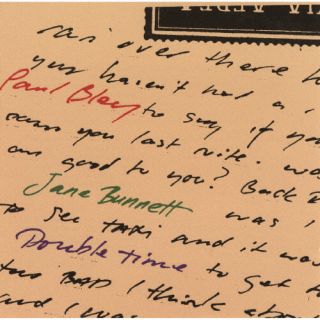 over there
you haven't had a
Paul Bley to say if you
you last nite.
good to you? Back
Jane Bunnett was I
to see TAXI and it was
Double time to get
too BAD I think
and I was